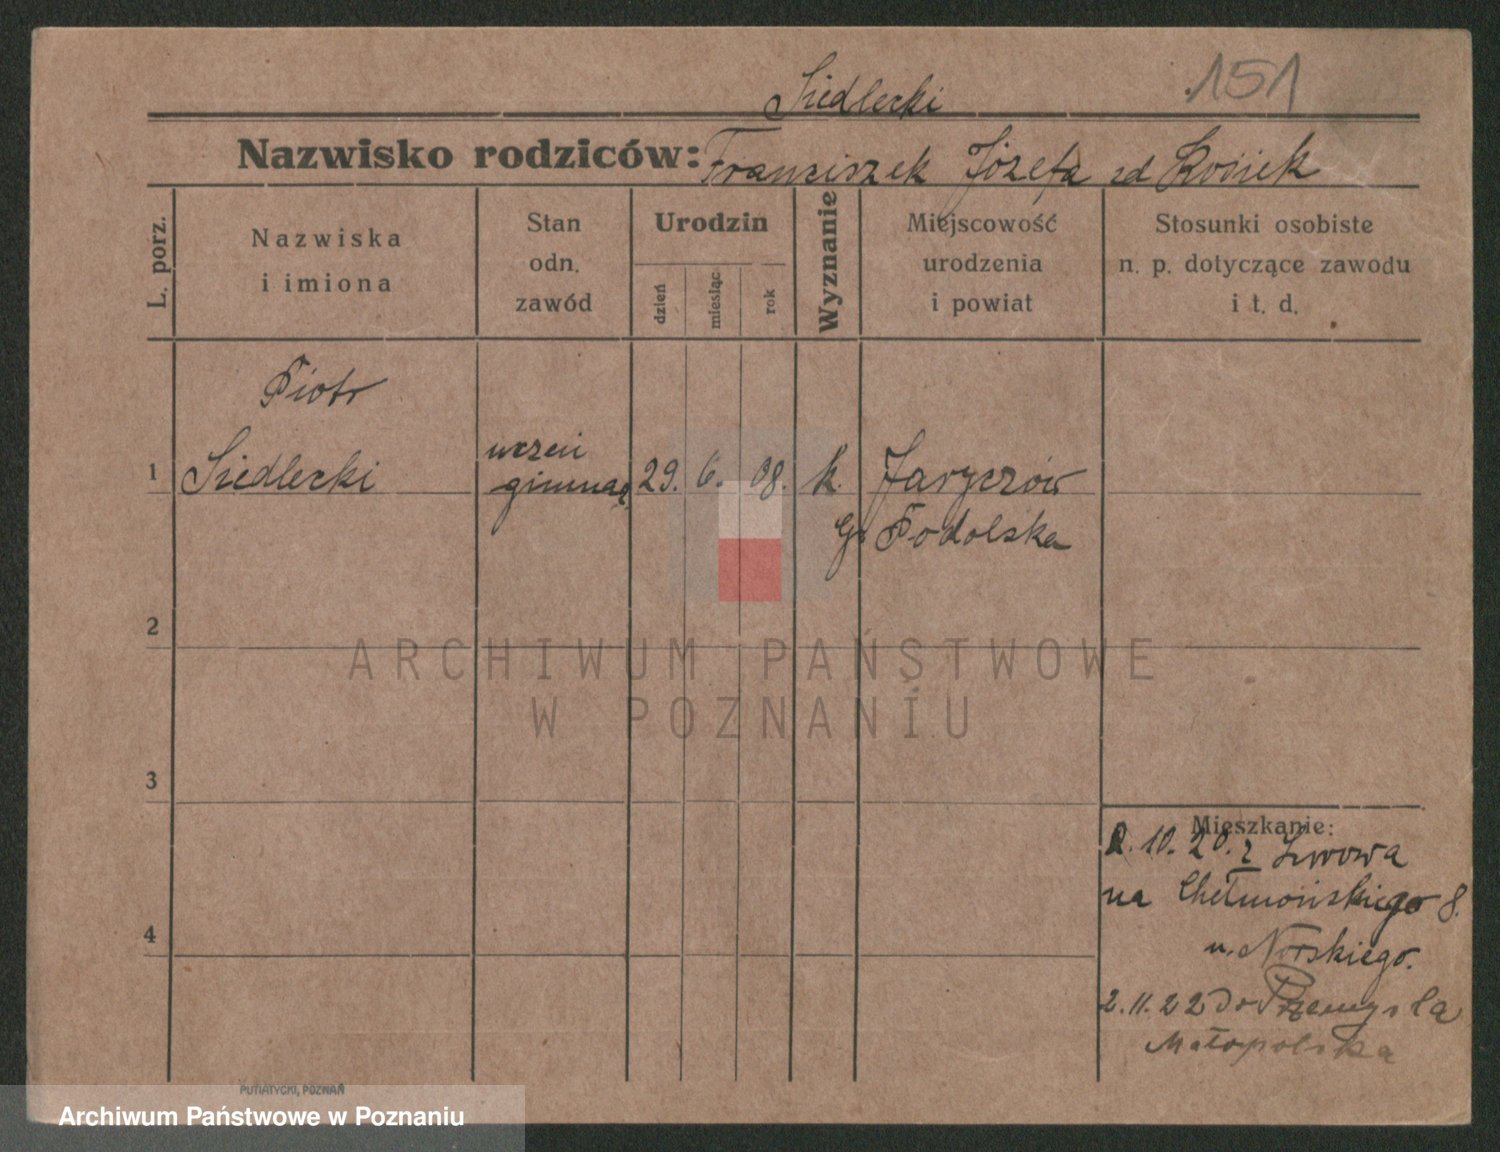 151
Siedlecki
Nazwisko rodziców: Franciszek Józefa zd Kosiek
L. porz.
Nazwiska
i imiona
Stan
odn.
zawód
Urodzin
dzień
miesiąc
rok
Wyznanie
Miejscowość
urodzenia
i powiat
Stosunki osobiste
n. p. dotyczące zawodu
i t. d.
Piotr
1 Siedlecki
uczeń
gimnaz
29. 6. 08. k. Jaryczów
Gr. Podolska
2
3
4
Mieszkanie:
2. 10. 20. z Lwowa
na Chełmońskiego 8.
u. Norskiego.
2. 11. 22 do Przemyśla
Małopolska
ARCHIWUM PAŃSTWOWE
W POZNANIU
PUTIATYCKI, POZNAŃ
Archiwum Państwowe w Poznaniu